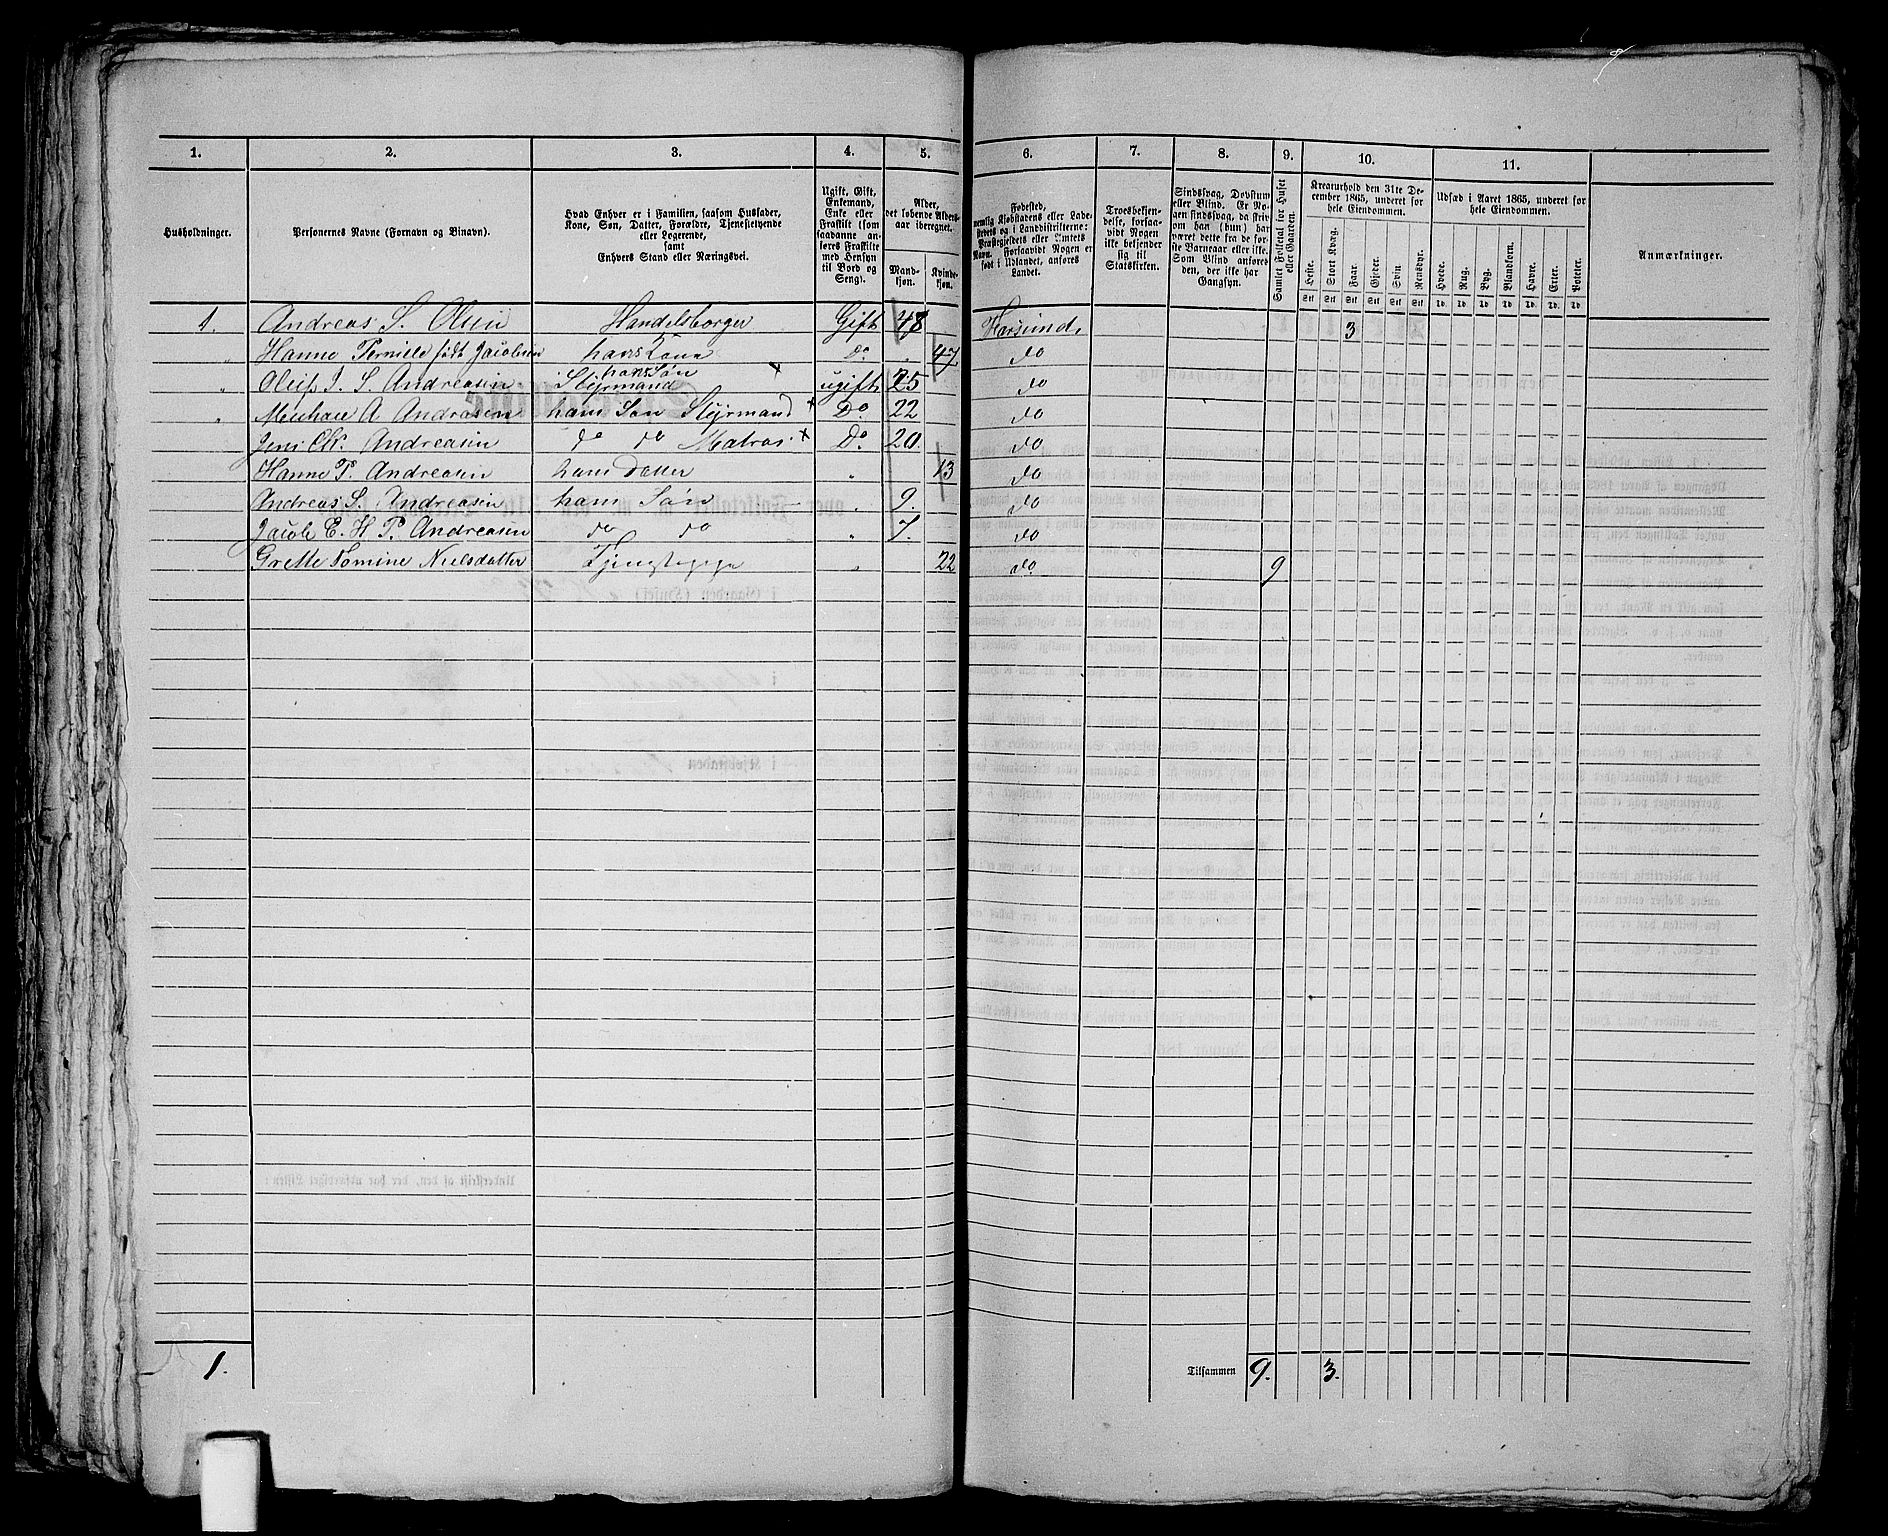 1. 2. 3. 4. 5. 6. 7. 8. 9. 10. 11.
Husholdninger.
Personernes Navne (Fornavn og Binavn).
Hvad Enhver er i Familien, saasom Husfader,
Kone, Søn, Datter, Forældre, Tjenestetyende
eller Logerende,
samt
Enhvers Stand eller Næringsvei.
Ugift, Gift,
Enkemand,
Enke eller
Fraskilt (som
saadanne an-
føres Fraskilte
med Hensyn
til Bord og
Seng).
Alder,
det løbende Alders-
aar iberegnet.
Mand-
kjøn.
Kvinde-
kjøn.
Fødested,
nemlig Kjøbstadens eller Lade-
stedets og i Landdistrikterne:
Præstegjeldets eller Amtets
Navn. Forsaavidt Nogen er
født i Udlandet, anføres
Landet.
Troesbekjen-
delse, forsaa-
vidt Nogen
ikke bekjender
sig til
Statskirken.
Sindssvag, Døvstum
eller Blind. Er No-
gen sindssvag, da skriv
om han (hun) har
været dette fra de før-
ste Barneaar eller ikke.
Som Blind anføres
den, der ikke har
Gangsyn.
Samlet Folketal for Huset
eller Gaarden.
Kreaturhold den 31te De-
cember 1865, underet for
hele Eiendommen.
Heste. Stort Kvæg. Faar. Gjeder. Svin. Rensdyr.
Utsæd i Aaret 1865, underet for
hele Eiendommen.
Hvede. Rug. Byg. Blandkorn. Havre. Erter. Poteter.
Stk Stk Stk Stk Stk Stk Td. Td. Td. Td. Td. Td. Td.
Anmærkninger.
1. Andreas S. Olsen Handelsborger Gift 48 3
" Hanne Pernille født Jacobsen hans Kone Do. " 47 do
" S. Andreasen Styrmand hans Søn x ugift 25 do
" A Andreasen hans Søn Styrmand x Do 22 do
Jens Chr. Andreasen do do Matros x Do 20. do
Hanne P. Andreasen hans Datter " 13 do
Andreas S. Andreasen hans Søn " 9. do
Jacob E. H. P. Andreasen do do " 7. do
Grette Tomine Nielsdatter Tjenstepige " 22 do 9
1. Tilsammen 9. 3.